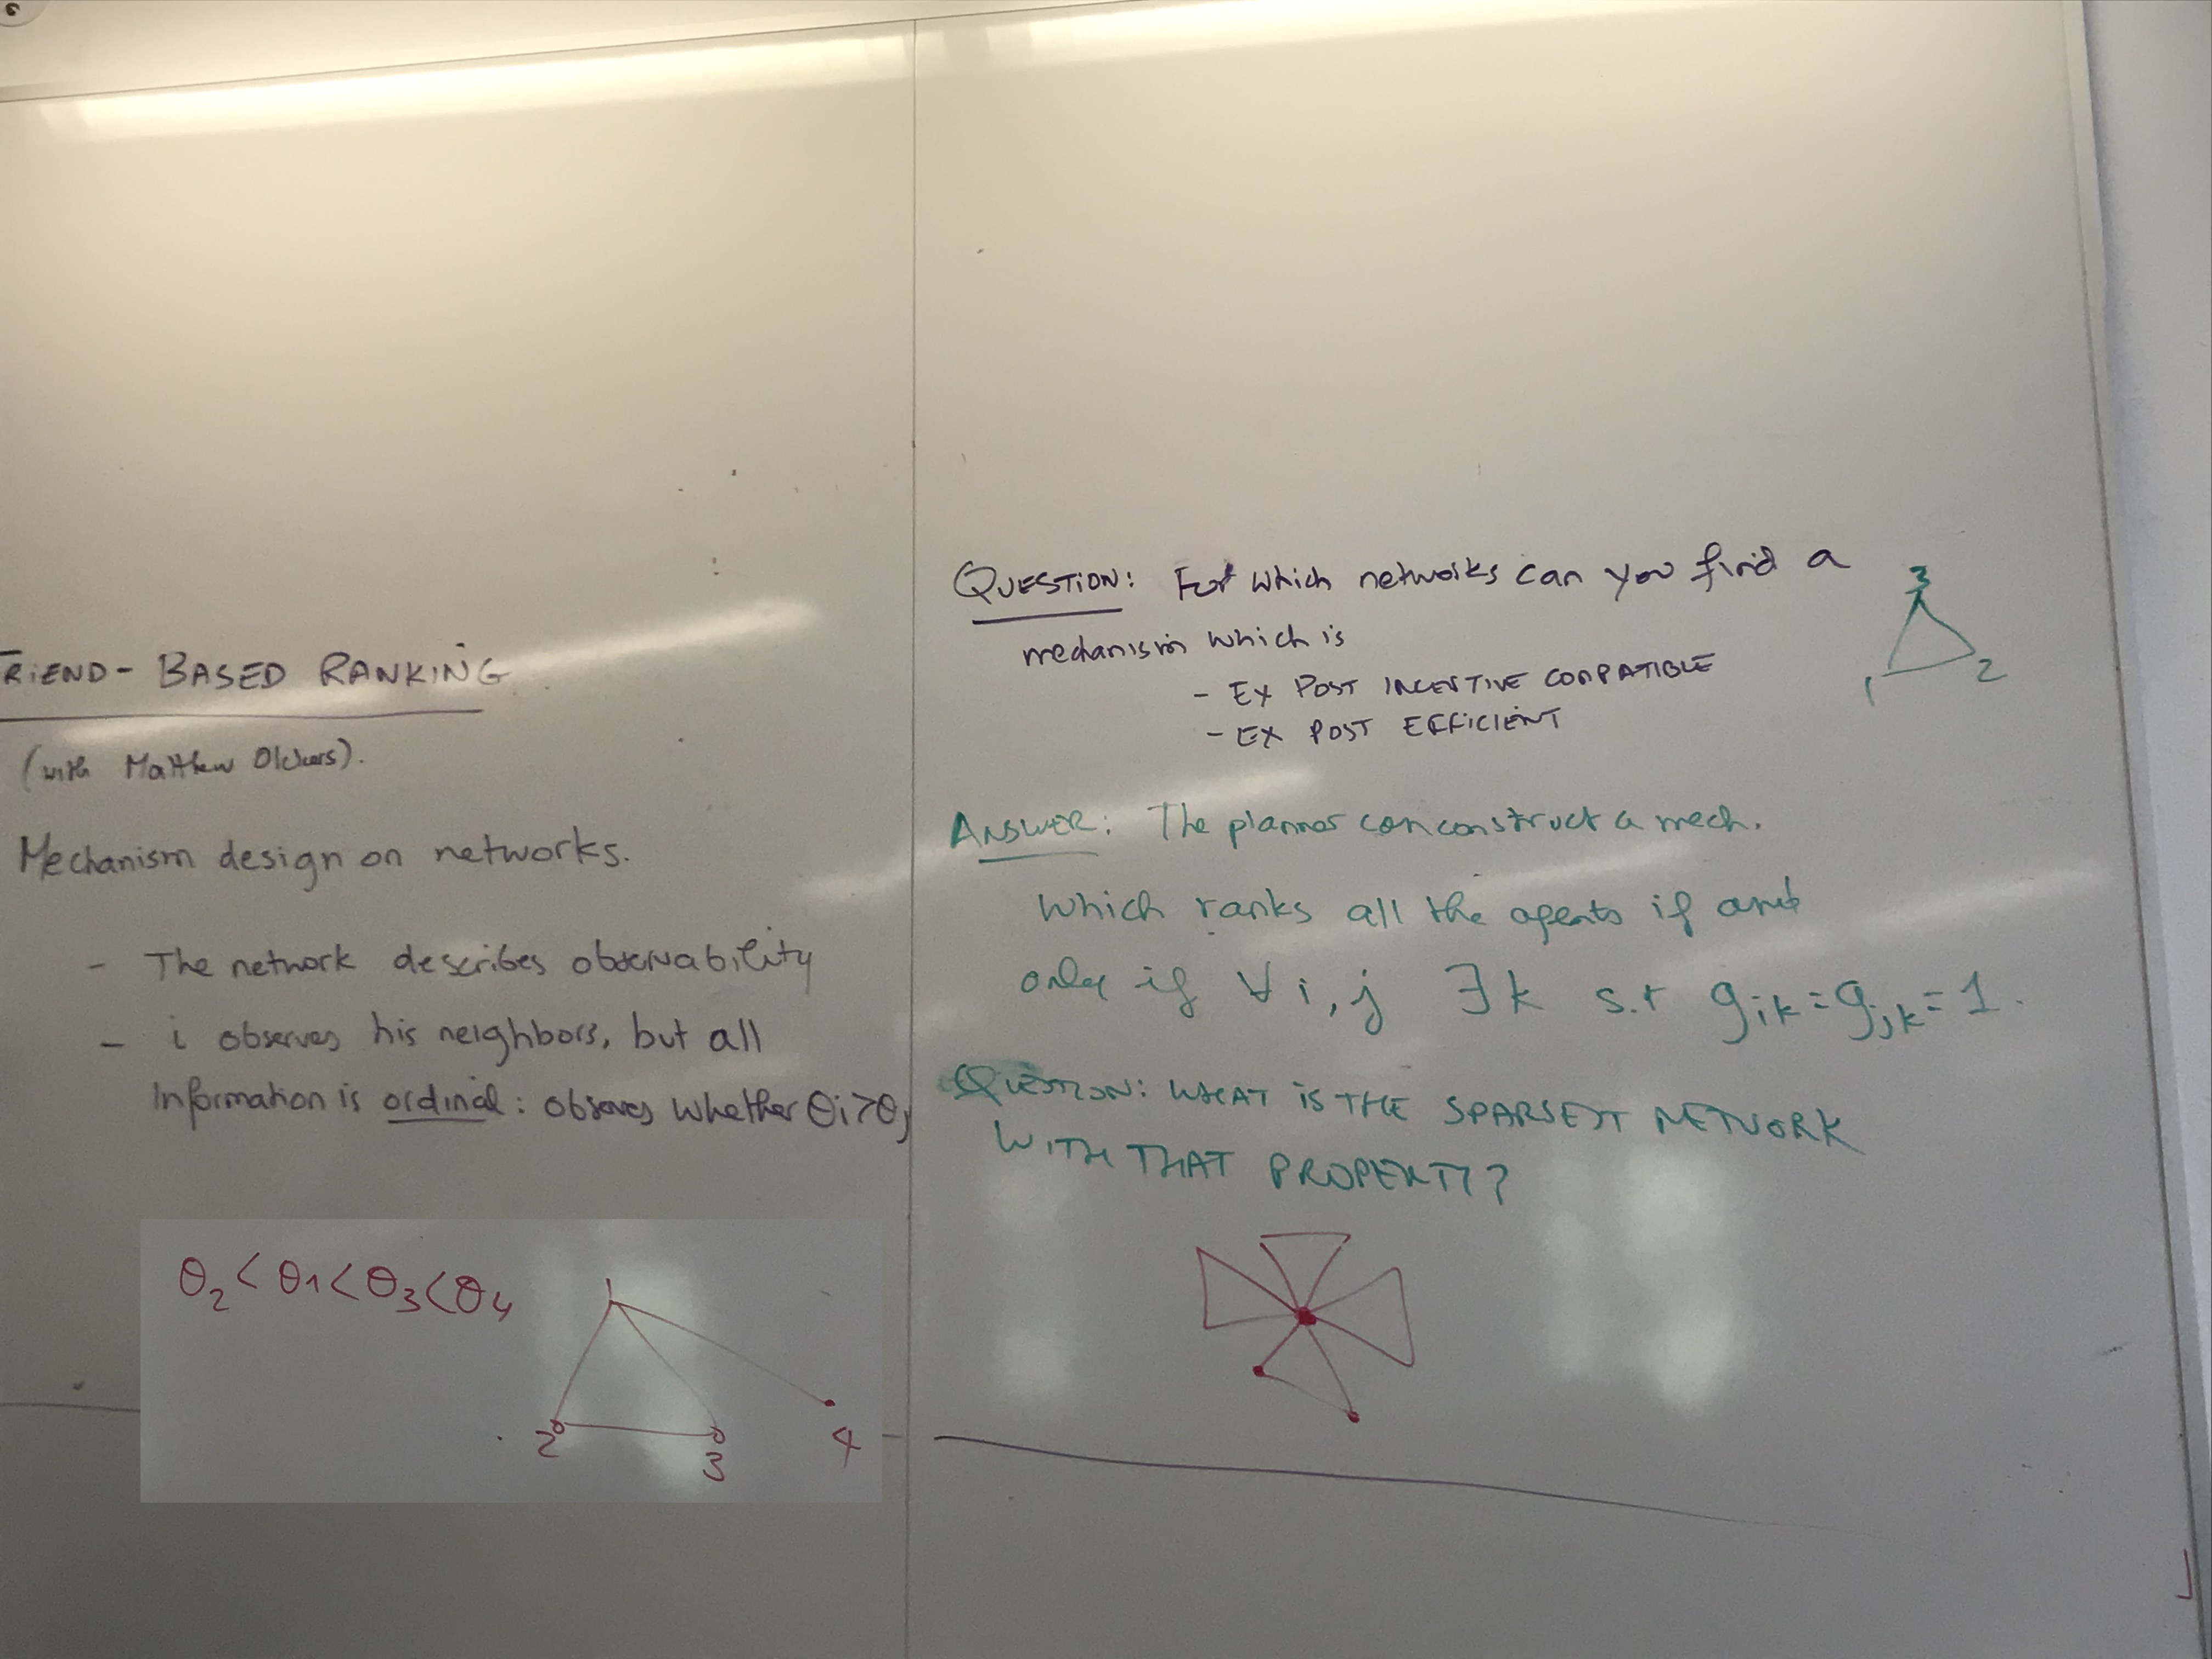 FRIEND-BASED RANKING
(with Matthew Olckers).
Mechanism design on networks.
- The network describes observability
- i observes his neighbors, but all
Information is ordinal: observes whether θi>θj
θ2<θ1<θ3<θ4
1
2
3
4
QUESTION: For which networks can you find a
mechanism which is
- EX POST INCENTIVE COMPATIBLE
- EX POST EFFICIENT
3
1
2
ANSWER: The planner can construct a mech.
which ranks all the agents if and
only if ∀ i,j ∃ k s.t gik=gjk=1.
QUESTION: WHAT IS THE SPARSEST NETWORK
WITH THAT PROPERTY?